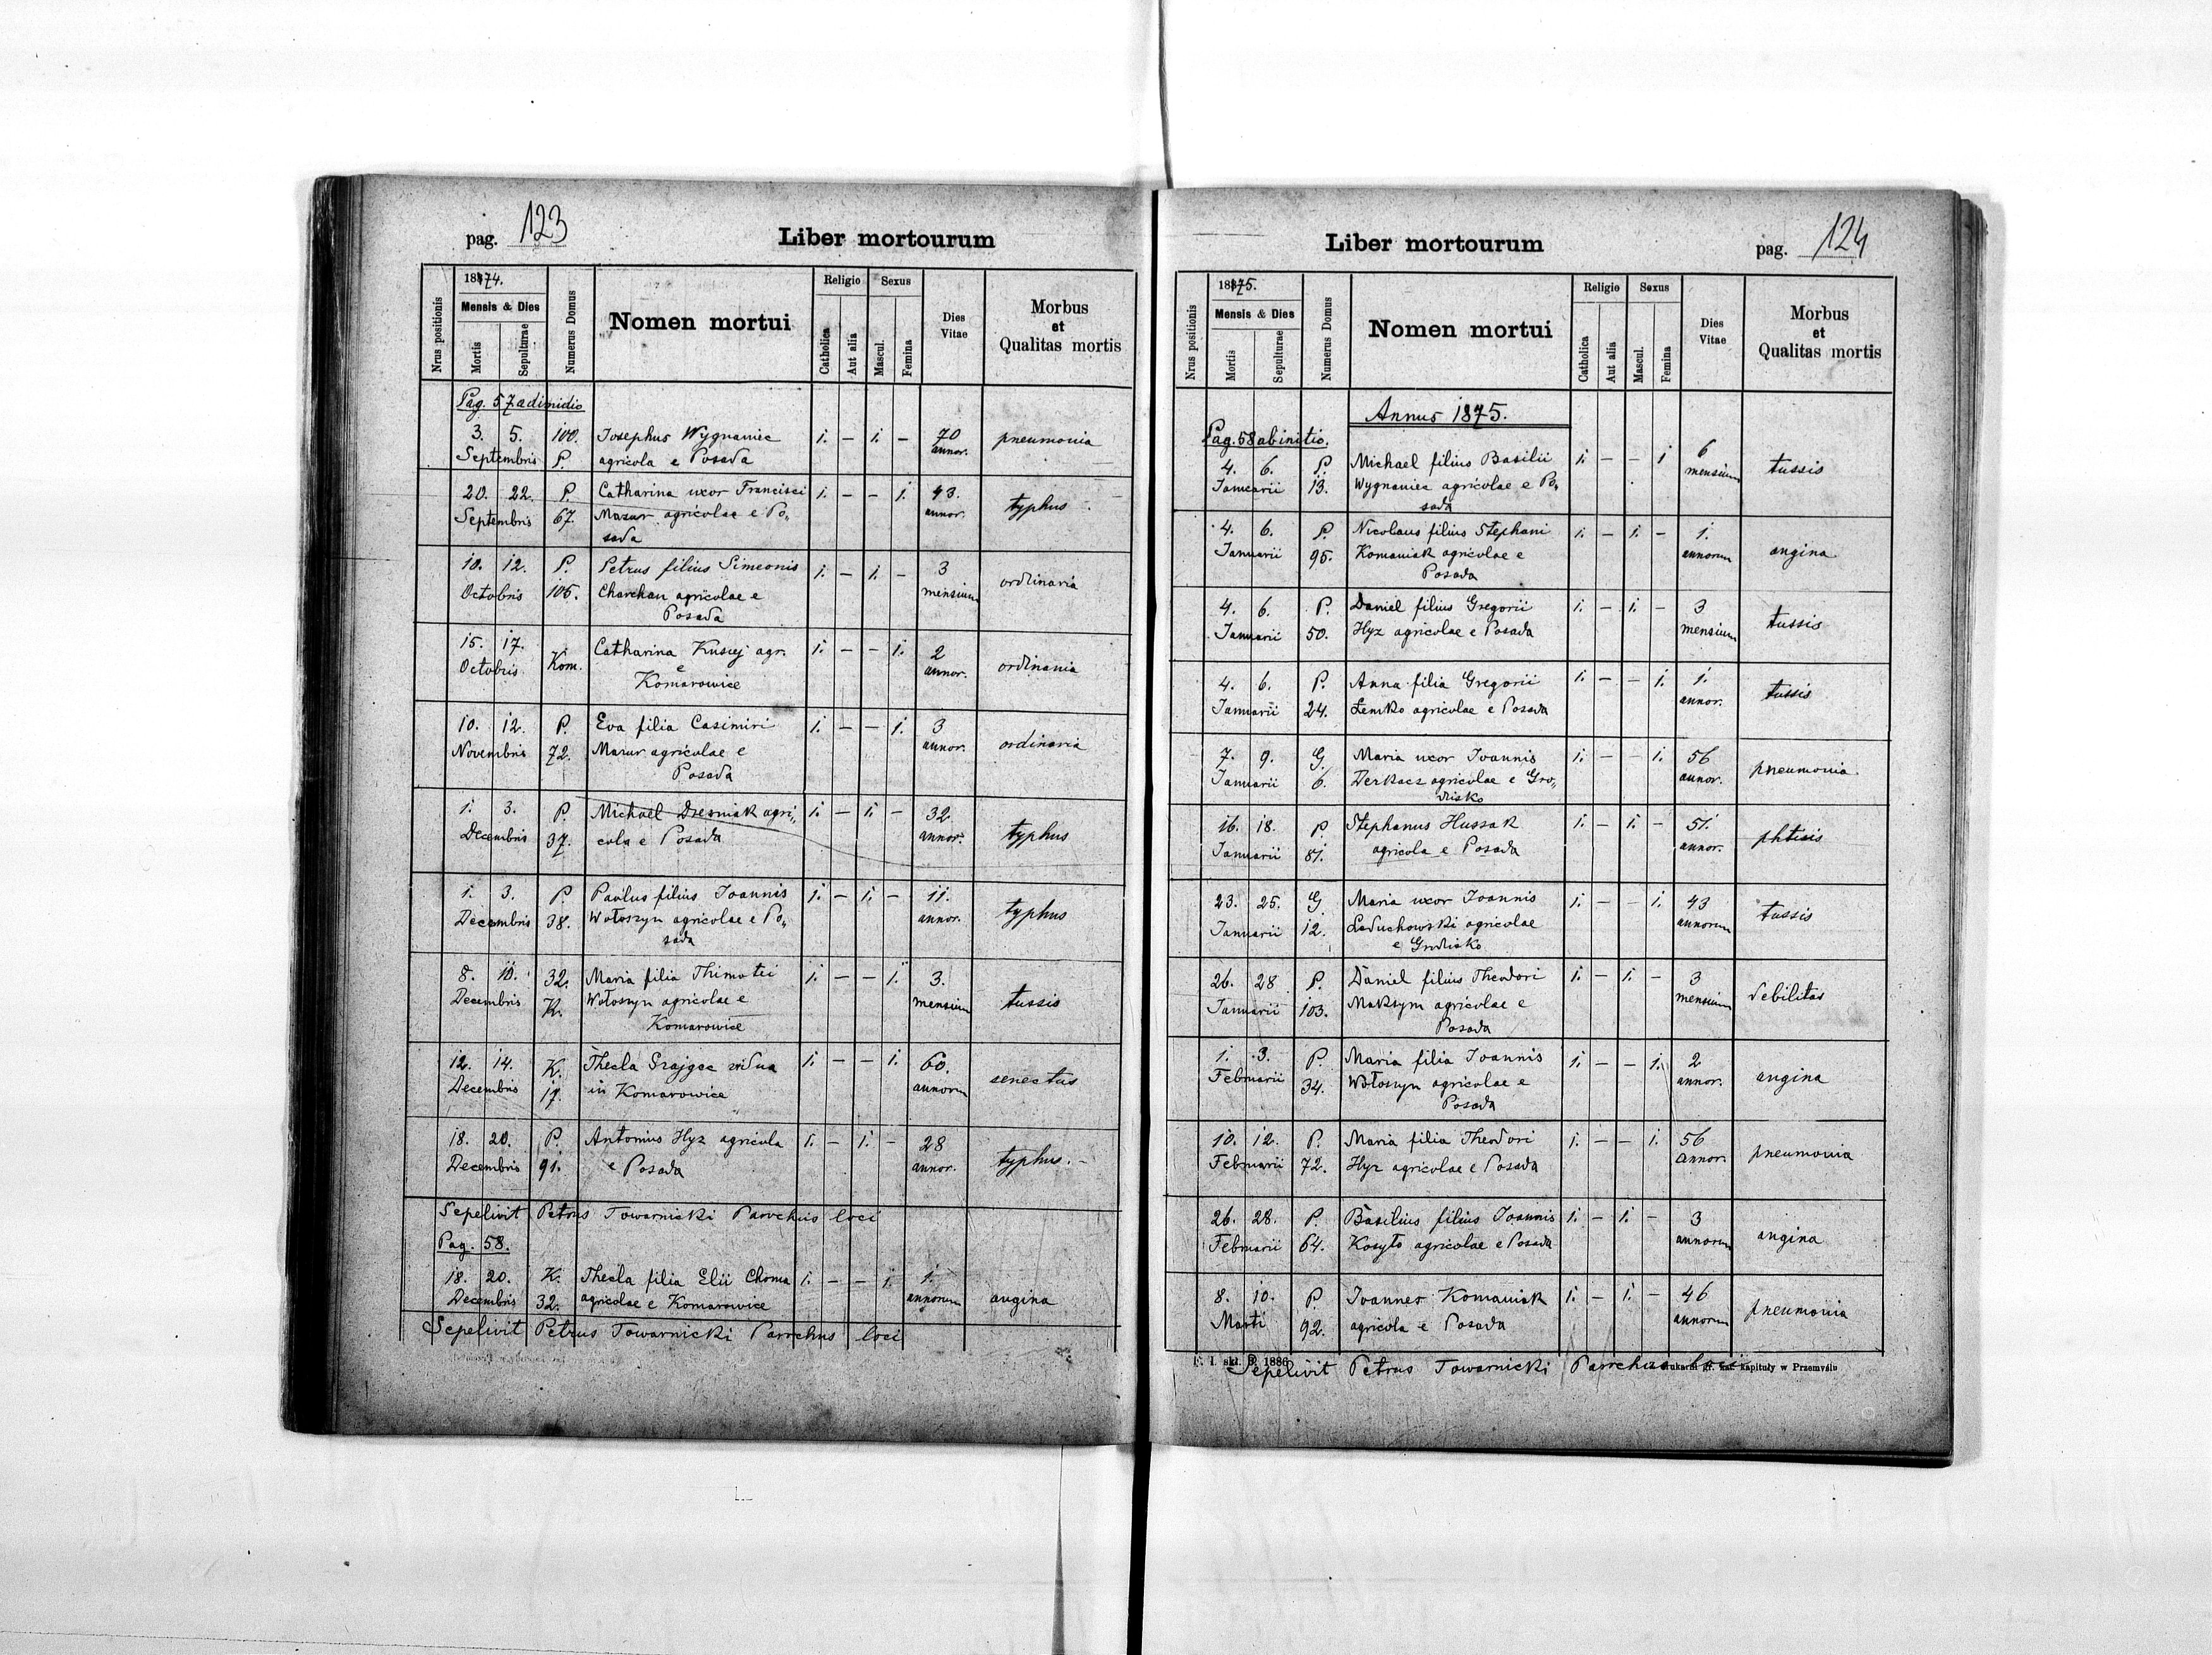 pag. 123
Liber mortourum
1874.
Mensis & Dies
Nrus positionis
Mortis
Sepulturae
Numerus Domus
Nomen mortui
Religio
Catholica
Aut alia
Sexus
Mascul.
Femina
Dies Vitae
Morbus
et
Qualitas mortis
Pag. 57 a dimidio
3. 5. 100. Josephus Wygnaniec 1. – 1. – 70 pneumonia
Septembris P. agricola e Posada annor.
20. 22. P. Catharina uxor Francisci 1. – – 1. 43. typhus
Septembris 67. Mazur agricolae e Po„ annor.
sada
10. 12. P. Petrus filius Simeonis 1. – 1. – 3 ordinaria
Octobris 105. Charchan agricolae e mensium
Posada
15. 17. Kom. Catharina agr. 1. – – 1. 2 ordinaria
Octobris e annor.
Komarowice
10. 12. P. Eva filia Casimiri 1. – – 1. 3 ordinaria
Novembris 72. Mazur agricolae e annor.
Posada
1. 3. P. Michael Dzesniak agri„ 1. – 1. – 32 typhus
Decembris 37. cola e Posada annor.
1. 3. P. Paulus filius Joannis 1. – 1. – 11. typhus
Decembris 38. Wołoszyn agricolae e Po„ annor.
sada
8. 10. 32. Maria filia Thimotei 1. – – 1. 3. tussis
Decembris K. Wołoszyn agricolae e mensium
Komarowice
12. 14. K. Thecla vidua 1. – – 1. 60. senectus
Decembris 17. in Komarowice annorum
18. 20. P. Antonius Hyz agricola 1. – 1. – 28 typhus. –
Decembris 91. e Posada annor.
Sepelivit Petrus Towarnicki Parochus loci
Pag. 58.
18. 20. K. Thecla filia Elii Choma 1. – – 1. 1. angina
Decembris 32. agricolae e Komarowice annorum
Sepelivit Petrus Towarnicki Parochus loci
Liber mortourum
pag. 124
1875.
Mensis & Dies
Nrus positionis
Mortis
Sepulturae
Numerus Domus
Nomen mortui
Religio
Catholica
Aut alia
Sexus
Mascul.
Femina
Dies Vitae
Morbus
et
Qualitas mortis
Annus 1875.
Pag. 58 ab initio.
4. 6. P. Michael filius Basilii 1. – – 1 6 tussis
Januarii 13. Wygnaniec agricolae e Po„ mensium
sada
4. 6. P. Nicolaus filius Stephani 1. – 1. – 1. angina
Januarii 95. Komaniak agricolae e annorum
Posada
4. 6. P. Daniel filius Gregorii 1. – 1. – 3 tussis
Januarii 50. Hyz agricolae e Posada mensium
4. 6. P. Anna filia Gregorii 1. – – 1. 1. tussis
Januarii 24. Łemko agricolae e Posada annor.
7. 9. G. Maria uxor Joannis 1. – – 1. 56 pneumonia
Januarii 6. Derkacz agricolae e Gro„ annor.
disko
16. 18. P. Stephanus Hussak 1. – 1. – 51. phtisis
Januarii 81. agricola e Posada annor.
23. 25. G. Maria uxor Joannis 1. – – 1. 43 tussis
Januarii 12. Laduchowski agricolae annorum
e Grodisko
26. 28 P. Daniel filius Theodori 1. – 1. – 3 debilitas
Januarii 103. Maksym agricolae e mensium
Posada
1. 3. P. Maria filia Joannis 1. – – 1. 2 angina
Februarii 34. Wołoszyn agricolae e annor.
Posada
10. 12. P. Maria filia Theodori 1. – – 1. 56 pneumonia
Februarii 72. Hyz agricolae e Posada annor.
26. 28. P. Basilius filius Joannis 1. – 1. – 3 angina
Februarii 64. Kosyło agricolae e Posada annorum
8. 10. P. Joannes Komaniak 1. – 1. – 46 pneumonia
Marti 92. agricola e Posada annorum
Sepelivit Petrus Towarnicki Parochus loci
1886 kapituły w Przemyślu